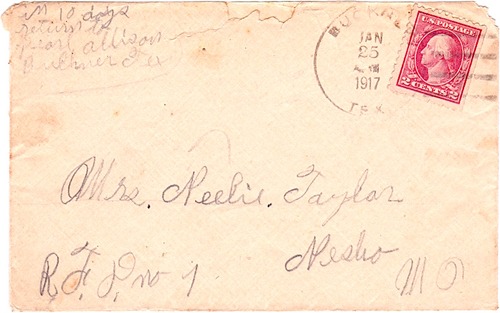 in 10 days
return to
Pearl Allison
Tex
JAN
25
1917
TEX
U.S. POSTAGE
2 CENTS 2
Mrs. Neelie. Taylor
Nesho
R.F.D. no 1
MO